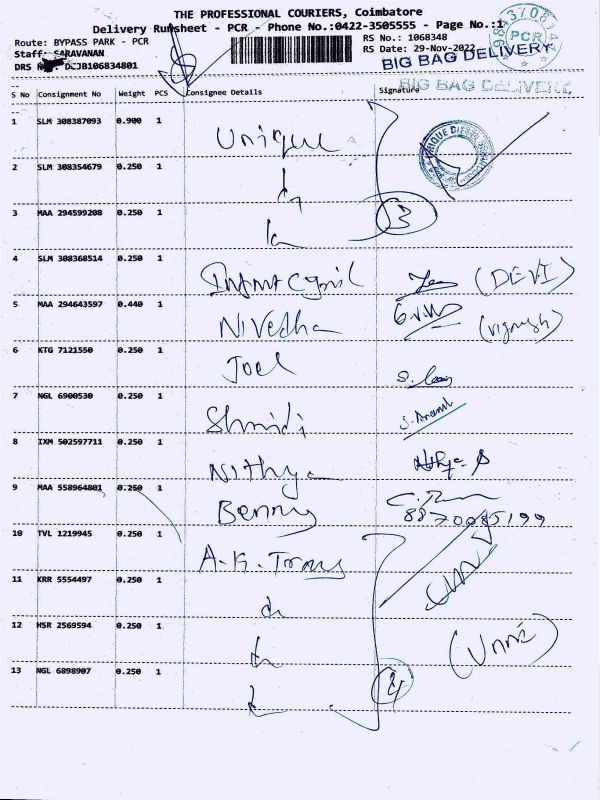 THE PROFESSIONAL COURIERS, Coimbatore
Delivery Runsheet - PCR - Phone No.:0422-3505555 - Page No.:1
Route: BYPASS PARK - PCR
RS No.: 1068348
Staff: SARAVANAN
RS Date: 29-Nov-2022
PCR
BIG BAG DELIVERY
DRS
BIG BAG DELIVERY
S No Consignment No Weight PCS Consignee Details Signature
1 SLM 308387093 0.900 1 Unique
2 SLM 308354679 0.250 1
3 MAA 294599208 0.250 1
3
4 SLM 308368514 0.250 1 (DEVI)
5 MAA 294643597 0.440 1 Nivedha (vignesh)
6 KTG 7121550 0.250 1 Joel
7 NGL 6900530 0.250 1
8 IXM 502597711 0.250 1 Nithya
9 MAA 558964801 0.250 1 Benny
8870085199
10 TVL 1219945 0.250 1 A.K. Trans
11 KRR 5554497 0.250 1
12 HSR 2569594 0.250 1
13 NGL 6898907 0.250 1
4